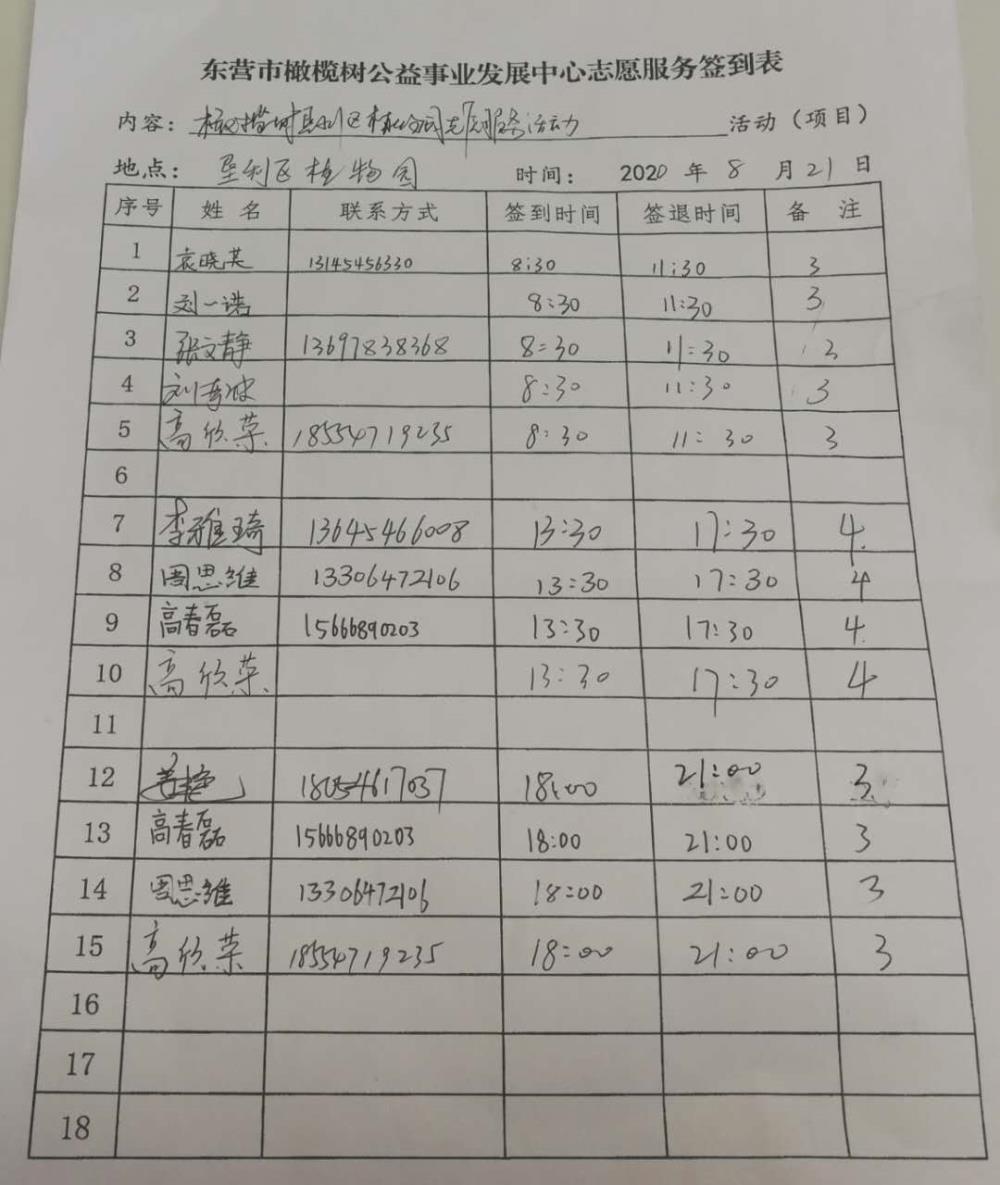 东营市橄榄树公益事业发展中心志愿服务签到表
内容：橄榄树垦利区植物园志愿服务活动 活动（项目）
地点：垦利区植物园 时间：2020年8月21日
序号 姓名 联系方式 签到时间 签退时间 备注
1 袁晓英 13145456330 8:30 11:30 3
2 刘一诺 8:30 11:30 3
3 张文静 13697838368 8:30 11:30 3
4 刘 8:30 11:30 3
5 高欣荣 18554719235 8:30 11:30 3
6
7 李雅琦 13645466008 13:30 17:30 4
8 周思维 13306472106 13:30 17:30 4
9 高春磊 15666890203 13:30 17:30 4
10 高欣荣 13:30 17:30 4
11
12 18054617037 18:00 21:00 3
13 高春磊 15666890203 18:00 21:00 3
14 周思维 13306472106 18:00 21:00 3
15 高欣荣 18554719235 18:00 21:00 3
16
17
18